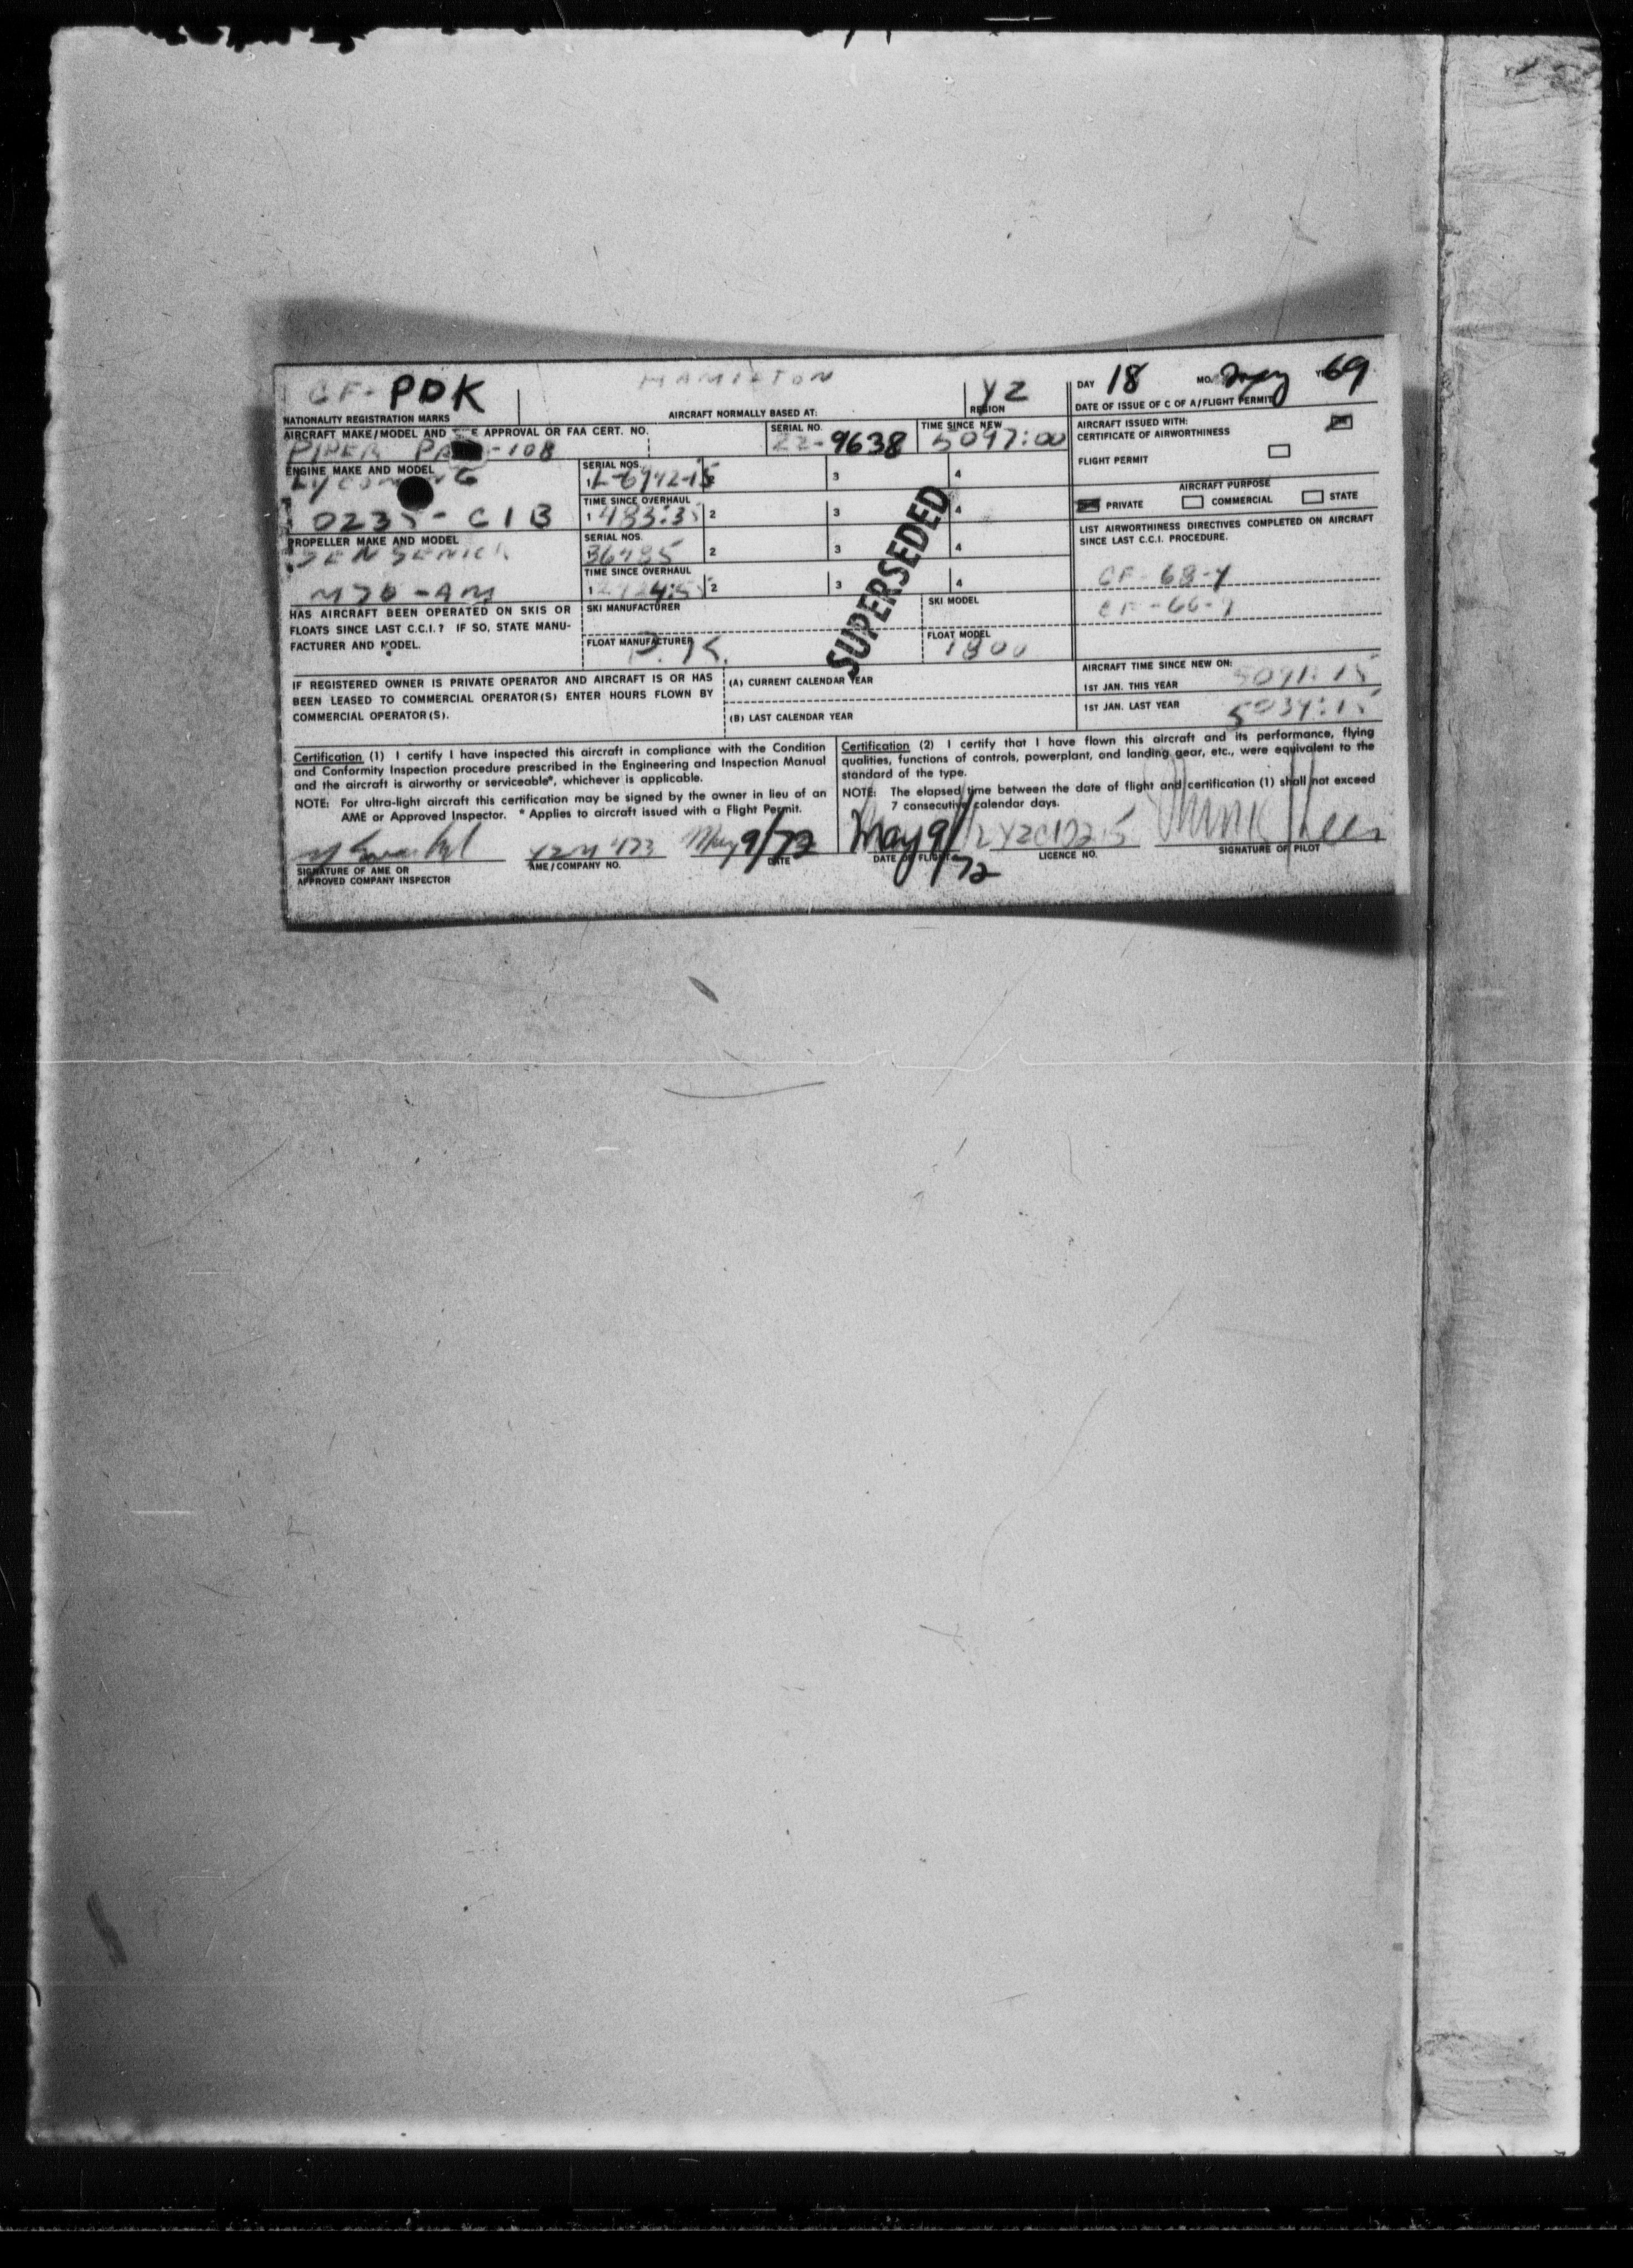 CF-PDK
HAMILTON
YZ
DAY 18 MO. YR 69
NATIONALITY REGISTRATION MARKS
AIRCRAFT NORMALLY BASED AT:
REGION
DATE OF ISSUE OF C OF A/FLIGHT PERMIT
AIRCRAFT MAKE/MODEL AND APPROVAL OR FAA CERT. NO.
PIPER PA -108
SERIAL NO.
22-9638
TIME SINCE NEW
5097:00
AIRCRAFT ISSUED WITH:
CERTIFICATE OF AIRWORTHINESS
FLIGHT PERMIT
ENGINE MAKE AND MODEL
LYCOMING
0235-C1B
SERIAL NOS.
1 L-6742-15 2 3 4
TIME SINCE OVERHAUL
1 483:35 2 3 4
AIRCRAFT PURPOSE
PRIVATE COMMERCIAL STATE
PROPELLER MAKE AND MODEL
SENSENICH
M76-AM
SERIAL NOS.
2 3 4
TIME SINCE OVERHAUL
1 2 3 4
LIST AIRWORTHINESS DIRECTIVES COMPLETED ON AIRCRAFT
SINCE LAST C.C.I. PROCEDURE.
CF-68-4
SUPERSEDED
HAS AIRCRAFT BEEN OPERATED ON SKIS OR
FLOATS SINCE LAST C.C.I.? IF SO, STATE MANU-
FACTURER AND MODEL.
SKI MANUFACTURER
SKI MODEL
FLOAT MANUFACTURER
P.K.
FLOAT MODEL
1800
IF REGISTERED OWNER IS PRIVATE OPERATOR AND AIRCRAFT IS OR HAS
BEEN LEASED TO COMMERCIAL OPERATOR(S) ENTER HOURS FLOWN BY
COMMERCIAL OPERATOR(S).
(A) CURRENT CALENDAR YEAR
(B) LAST CALENDAR YEAR
AIRCRAFT TIME SINCE NEW ON:
1ST JAN. THIS YEAR 5091:15
1ST JAN. LAST YEAR 5034:15
Certification (1) I certify I have inspected this aircraft in compliance with the Condition
and Conformity Inspection procedure prescribed in the Engineering and Inspection Manual
and the aircraft is airworthy or serviceable*, whichever is applicable.
NOTE: For ultra-light aircraft this certification may be signed by the owner in lieu of an
AME or Approved Inspector. * Applies to aircraft issued with a Flight Permit.
May 9/72
SIGNATURE OF AME OR
APPROVED COMPANY INSPECTOR
AME/COMPANY NO.
DATE
Certification (2) I certify that I have flown this aircraft and its performance, flying
qualities, functions of controls, powerplant, and landing gear, etc., were equivalent to the
standard of the type.
NOTE: The elapsed time between the date of flight and certification (1) shall not exceed
7 consecutive calendar days.
May 9/72
DATE OF FLIGHT
LICENCE NO.
SIGNATURE OF PILOT